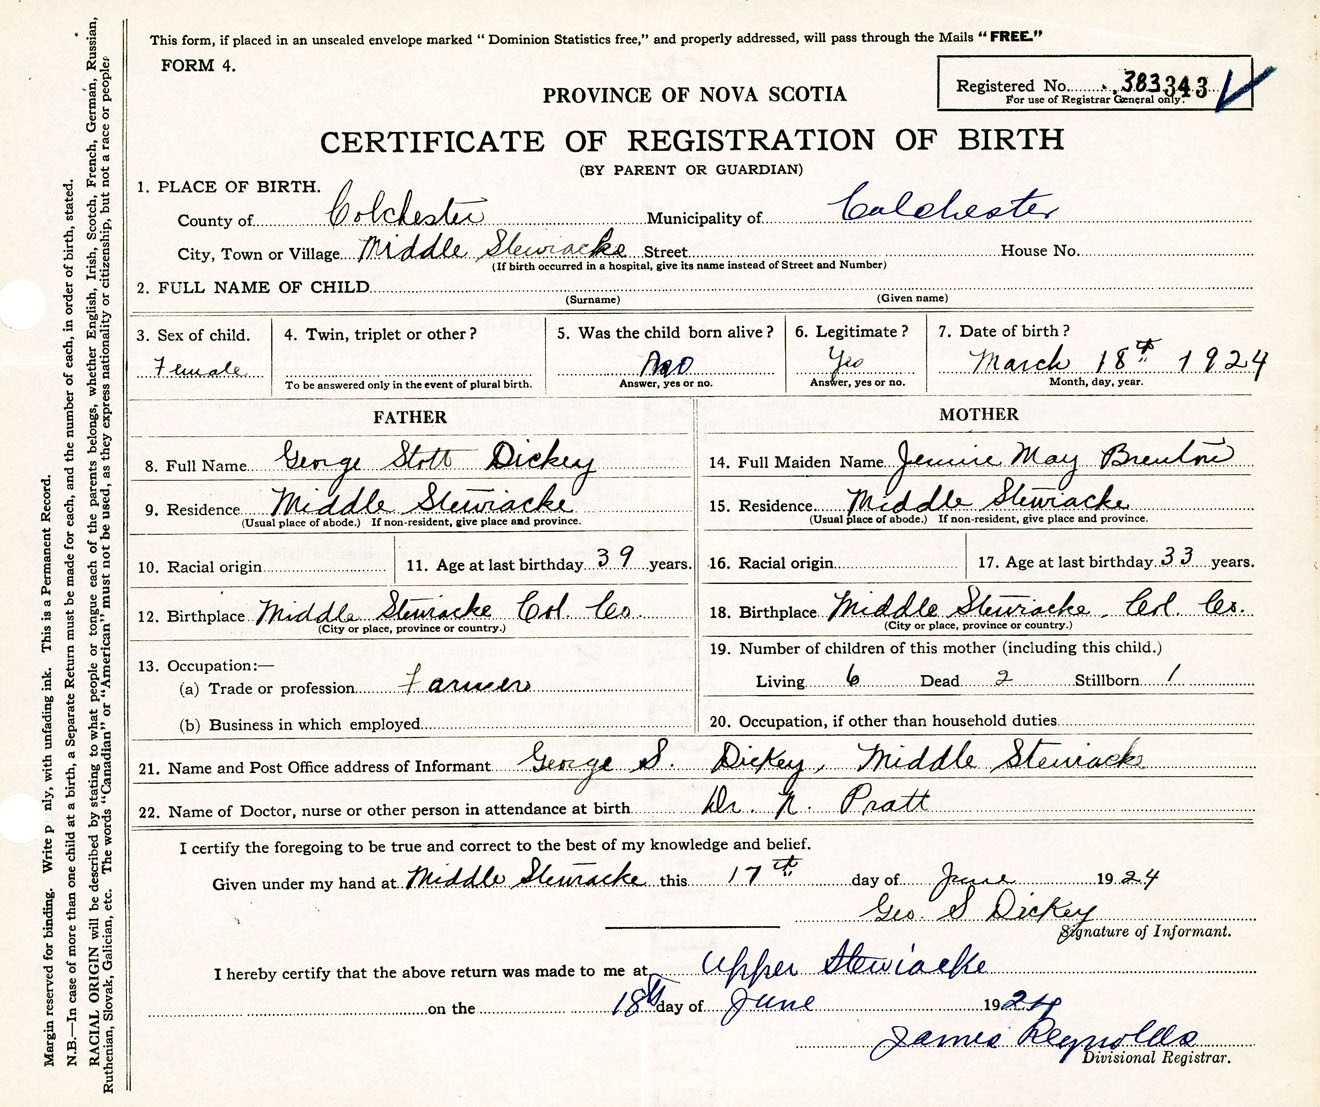 This form, if placed in an unsealed envelope marked " Dominion Statistics free," and properly addressed, will pass through the Mails "FREE."
FORM 4.
Registered No. 383343
For use of Registrar General only.
PROVINCE OF NOVA SCOTIA
CERTIFICATE OF REGISTRATION OF BIRTH
(BY PARENT OR GUARDIAN)
1. PLACE OF BIRTH.
County of Colchester Municipality of Colchester
City, Town or Village Middle Stewiacke Street House No.
(If birth occurred in a hospital, give its name instead of Street and Number)
2. FULL NAME OF CHILD
(Surname) (Given name)
3. Sex of child. 4. Twin, triplet or other? 5. Was the child born alive? 6. Legitimate? 7. Date of birth?
Female No Yes March 18th 1924
To be answered only in the event of plural birth. Answer, yes or no. Answer, yes or no. Month, day, year.
FATHER MOTHER
8. Full Name George Stott Dickey 14. Full Maiden Name Jennie May Brenton
9. Residence Middle Stewiacke 15. Residence Middle Stewiacke
(Usual place of abode.) If non-resident, give place and province. (Usual place of abode.) If non-resident, give place and province.
10. Racial origin 11. Age at last birthday 39 years. 16. Racial origin 17. Age at last birthday 33 years.
12. Birthplace Middle Stewiacke Col. Co. 18. Birthplace Middle Stewiacke, Col. Co.
(City or place, province or country.) (City or place, province or country.)
13. Occupation:— 19. Number of children of this mother (including this child.)
(a) Trade or profession Farmer Living 6 Dead 2 Stillborn 1
(b) Business in which employed 20. Occupation, if other than household duties
21. Name and Post Office address of Informant George S. Dickey, Middle Stewiacke
22. Name of Doctor, nurse or other person in attendance at birth Dr. N. Pratt
I certify the foregoing to be true and correct to the best of my knowledge and belief.
Given under my hand at Middle Stewiacke this 17th day of June 1924
Geo. S Dickey
Signature of Informant.
I hereby certify that the above return was made to me at Upper Stewiacke
on the 18th day of June 1924
James Reynolds
Divisional Registrar.
Margin reserved for binding. Write p nly, with unfading ink. This is a Permanent Record.
N.B.—In case of more than one child at a birth, a Separate Return must be made for each, and the number of each, in order of birth, stated.
RACIAL ORIGIN will be described by stating to what people or tongue each of the parents belongs, whether English, Irish, Scotch, French, German, Russian,
Ruthenian, Slovak, Galician, etc. The words "Canadian" or "American" must not be used, as they express nationality or citizenship, but not a race or people.